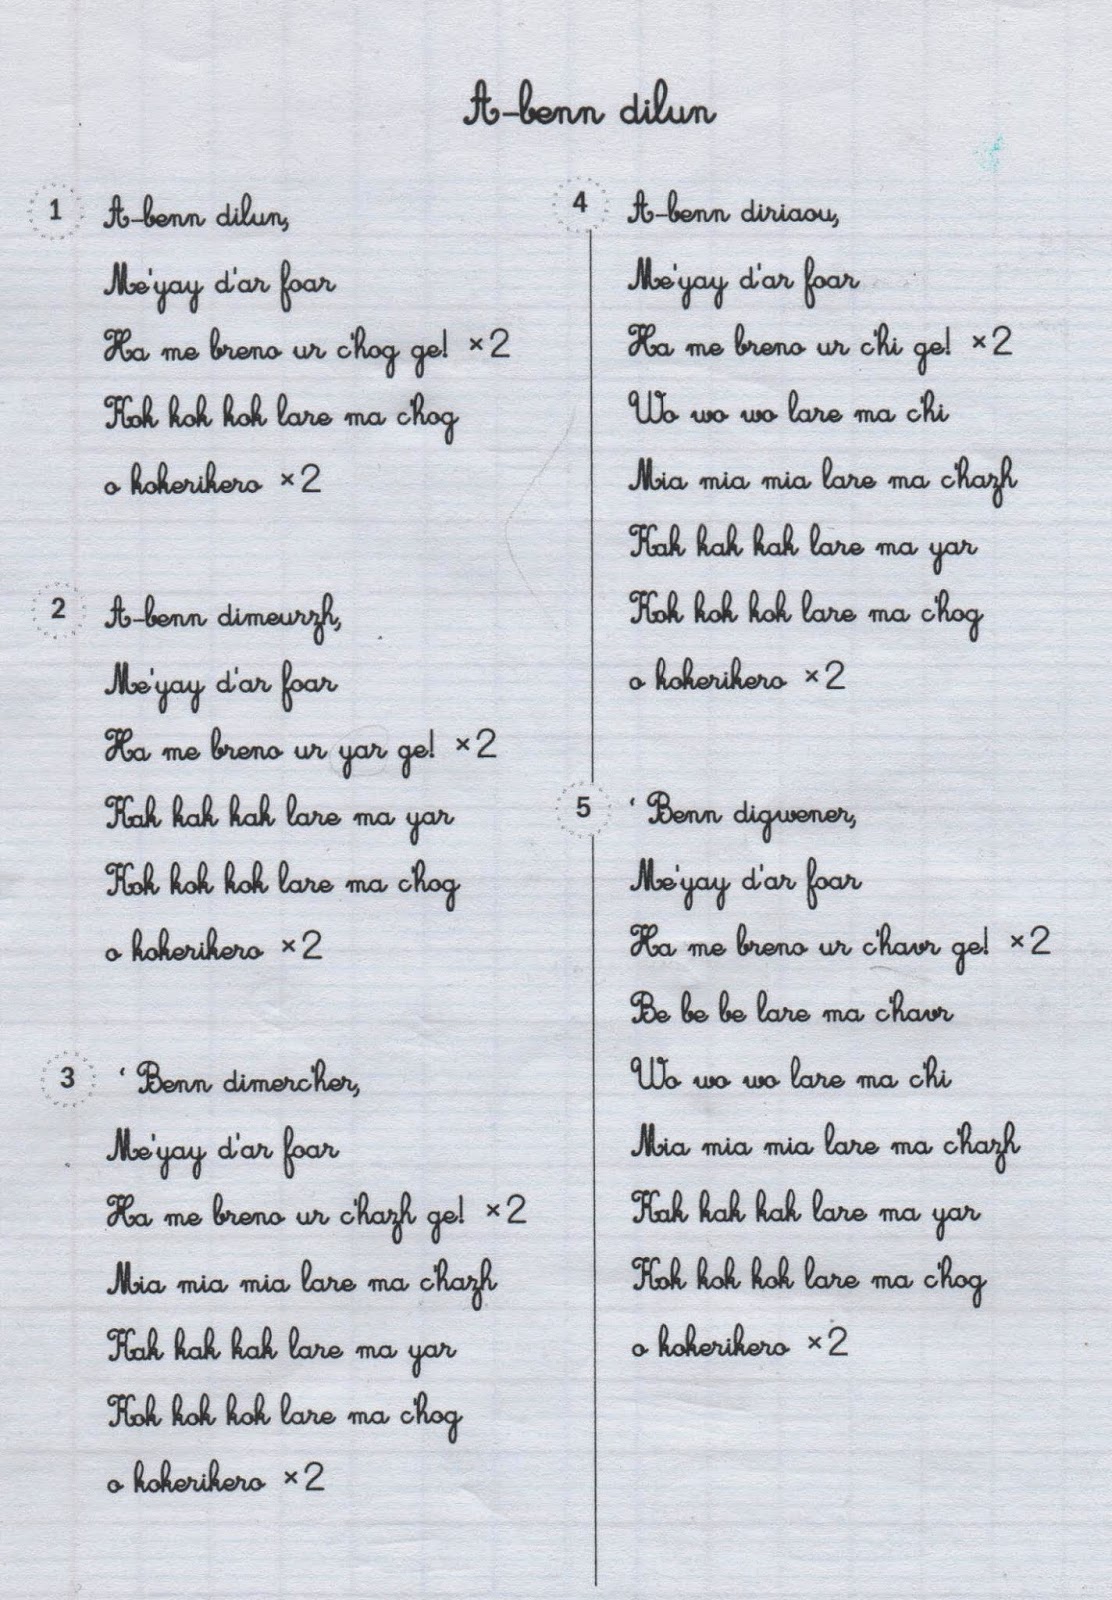 A-benn dilun
1
A-benn dilun,
Me'yay d'ar foar
Ha me breno ur c'hog ge! ×2
Kok kok kok lare ma c'hog
o kokerikero ×2
2
A-benn dimeurzh,
Me'yay d'ar foar
Ha me breno ur yar ge! ×2
Kak kak kak lare ma yar
Kok kok kok lare ma c'hog
o kokerikero ×2
3
‘ Benn dimerc'her,
Me'yay d'ar foar
Ha me breno ur c'hazh ge! ×2
Mia mia mia lare ma c'hazh
Kak kak kak lare ma yar
Kok kok kok lare ma c'hog
o kokerikero ×2
4
A-benn diriaou,
Me'yay d'ar foar
Ha me breno ur c'hi ge! ×2
Wo wo wo lare ma c'hi
Mia mia mia lare ma c'hazh
Kak kak kak lare ma yar
Kok kok kok lare ma c'hog
o kokerikero ×2
5
‘ Benn digwener,
Me'yay d'ar foar
Ha me breno ur c'havr ge! ×2
Be be be lare ma c'havr
Wo wo wo lare ma c'hi
Mia mia mia lare ma c'hazh
Kak kak kak lare ma yar
Kok kok kok lare ma c'hog
o kokerikero ×2